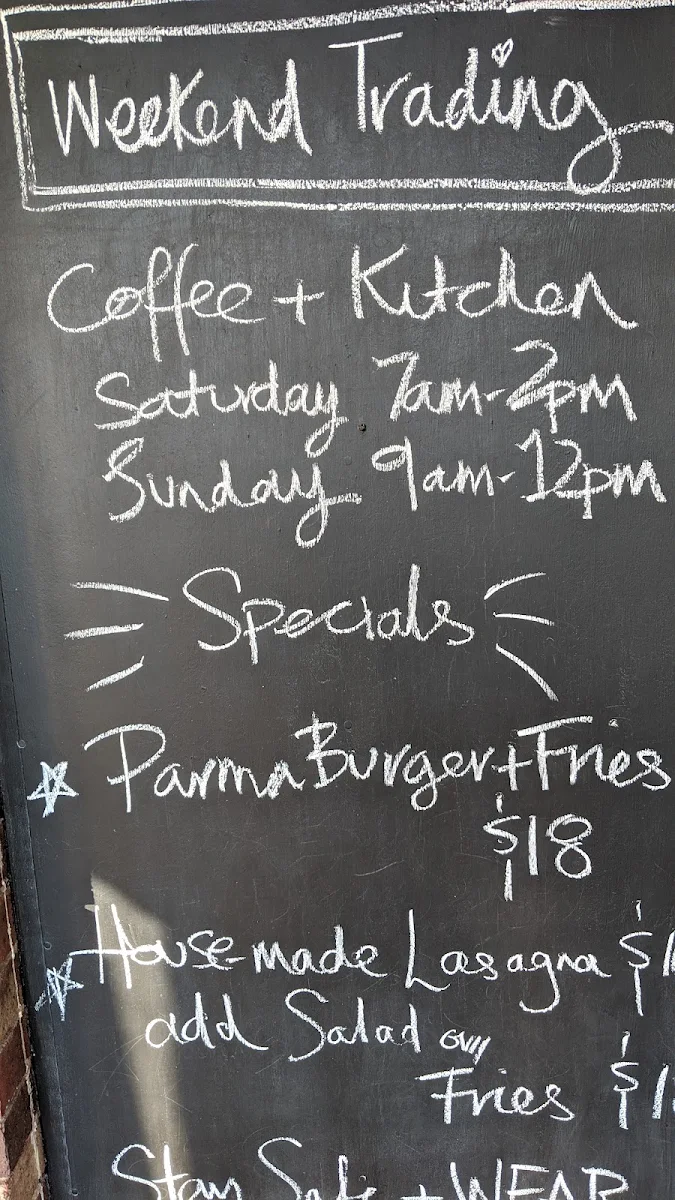 Weekend Trading
Coffee + Kitchen
Saturday 7am-2pm
Sunday 9am-12pm
Specials
Parma Burger + Fries
$18
House-made Lasagna $1
add Salad or
Fries $1
Stay Safe + WEAR